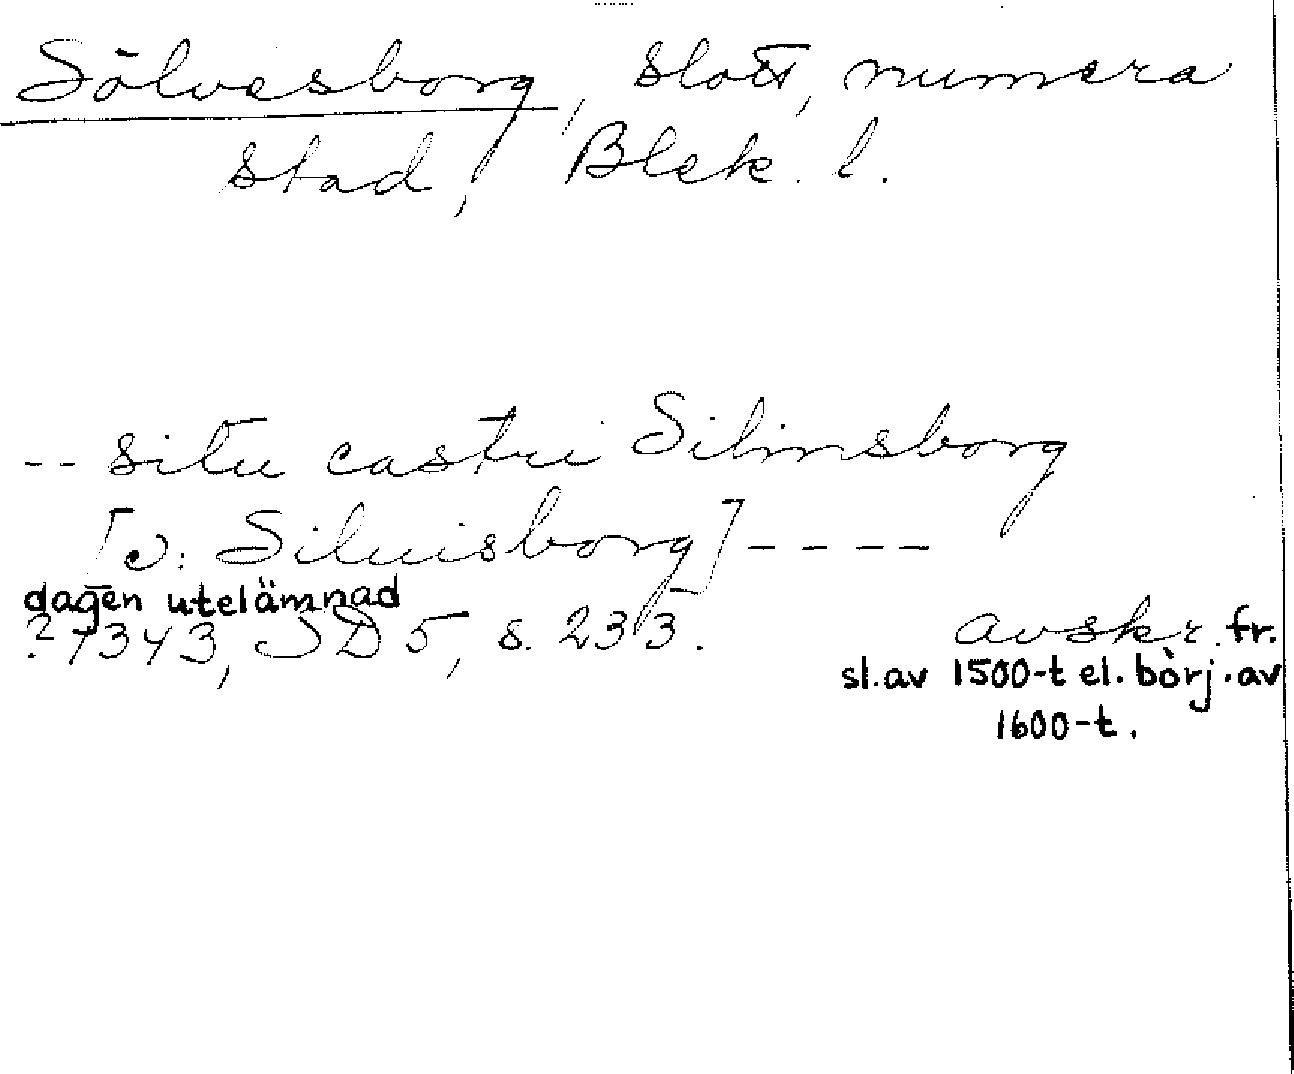 Sölvesborg, slott, numera
stad, Blek. l.
-- situ castri Silinsborg
[ɔ: Siluisborg] ----
dagen utelämnad
? 1343, SD 5, s. 233.
avskr. fr.
sl. av 1500-t el. börj. av
1600-t.